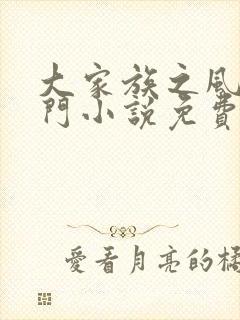 大家族之風
門小說免費
愛看月亮的橘